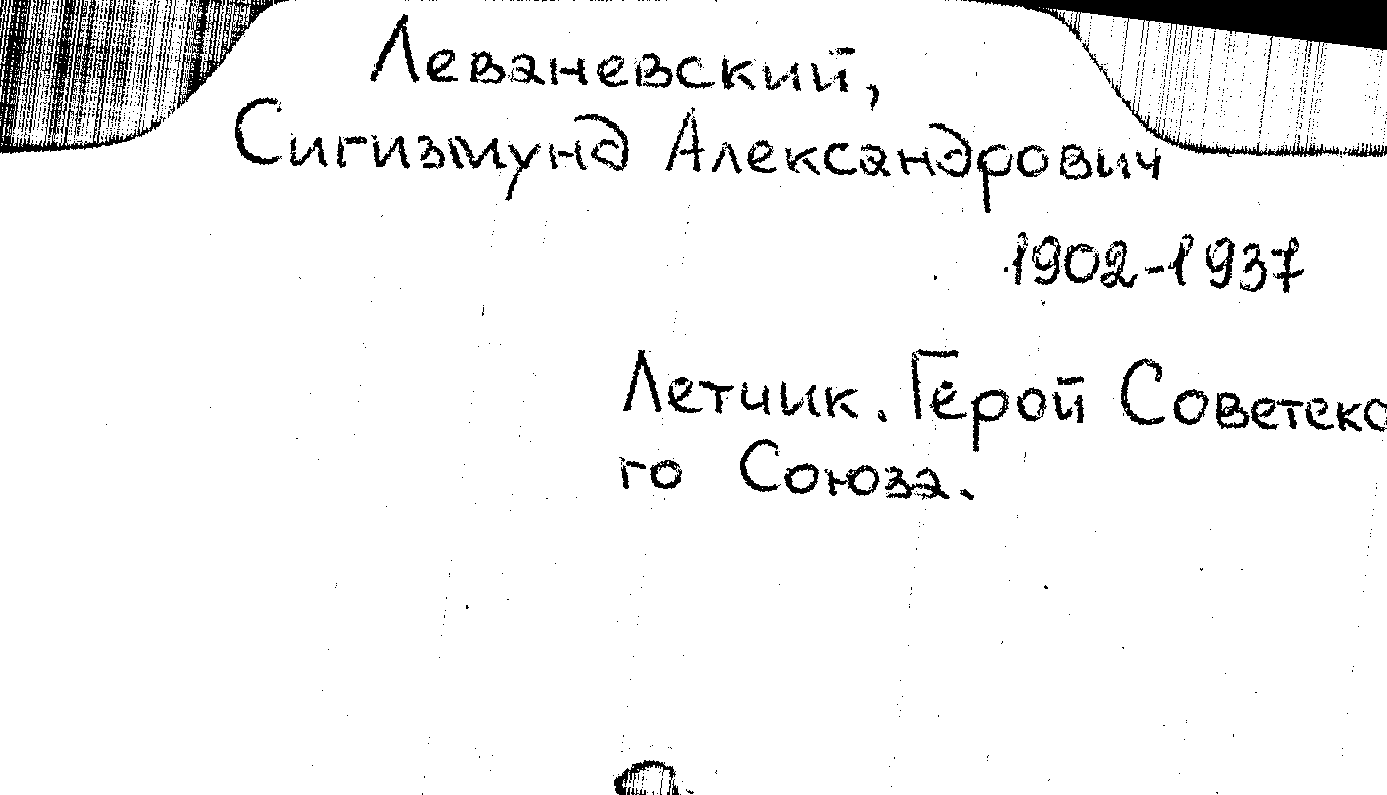 Леваневский,
Сигизмунд Александрович
1902-1937
Летчик. Герой Советско
го Союза.